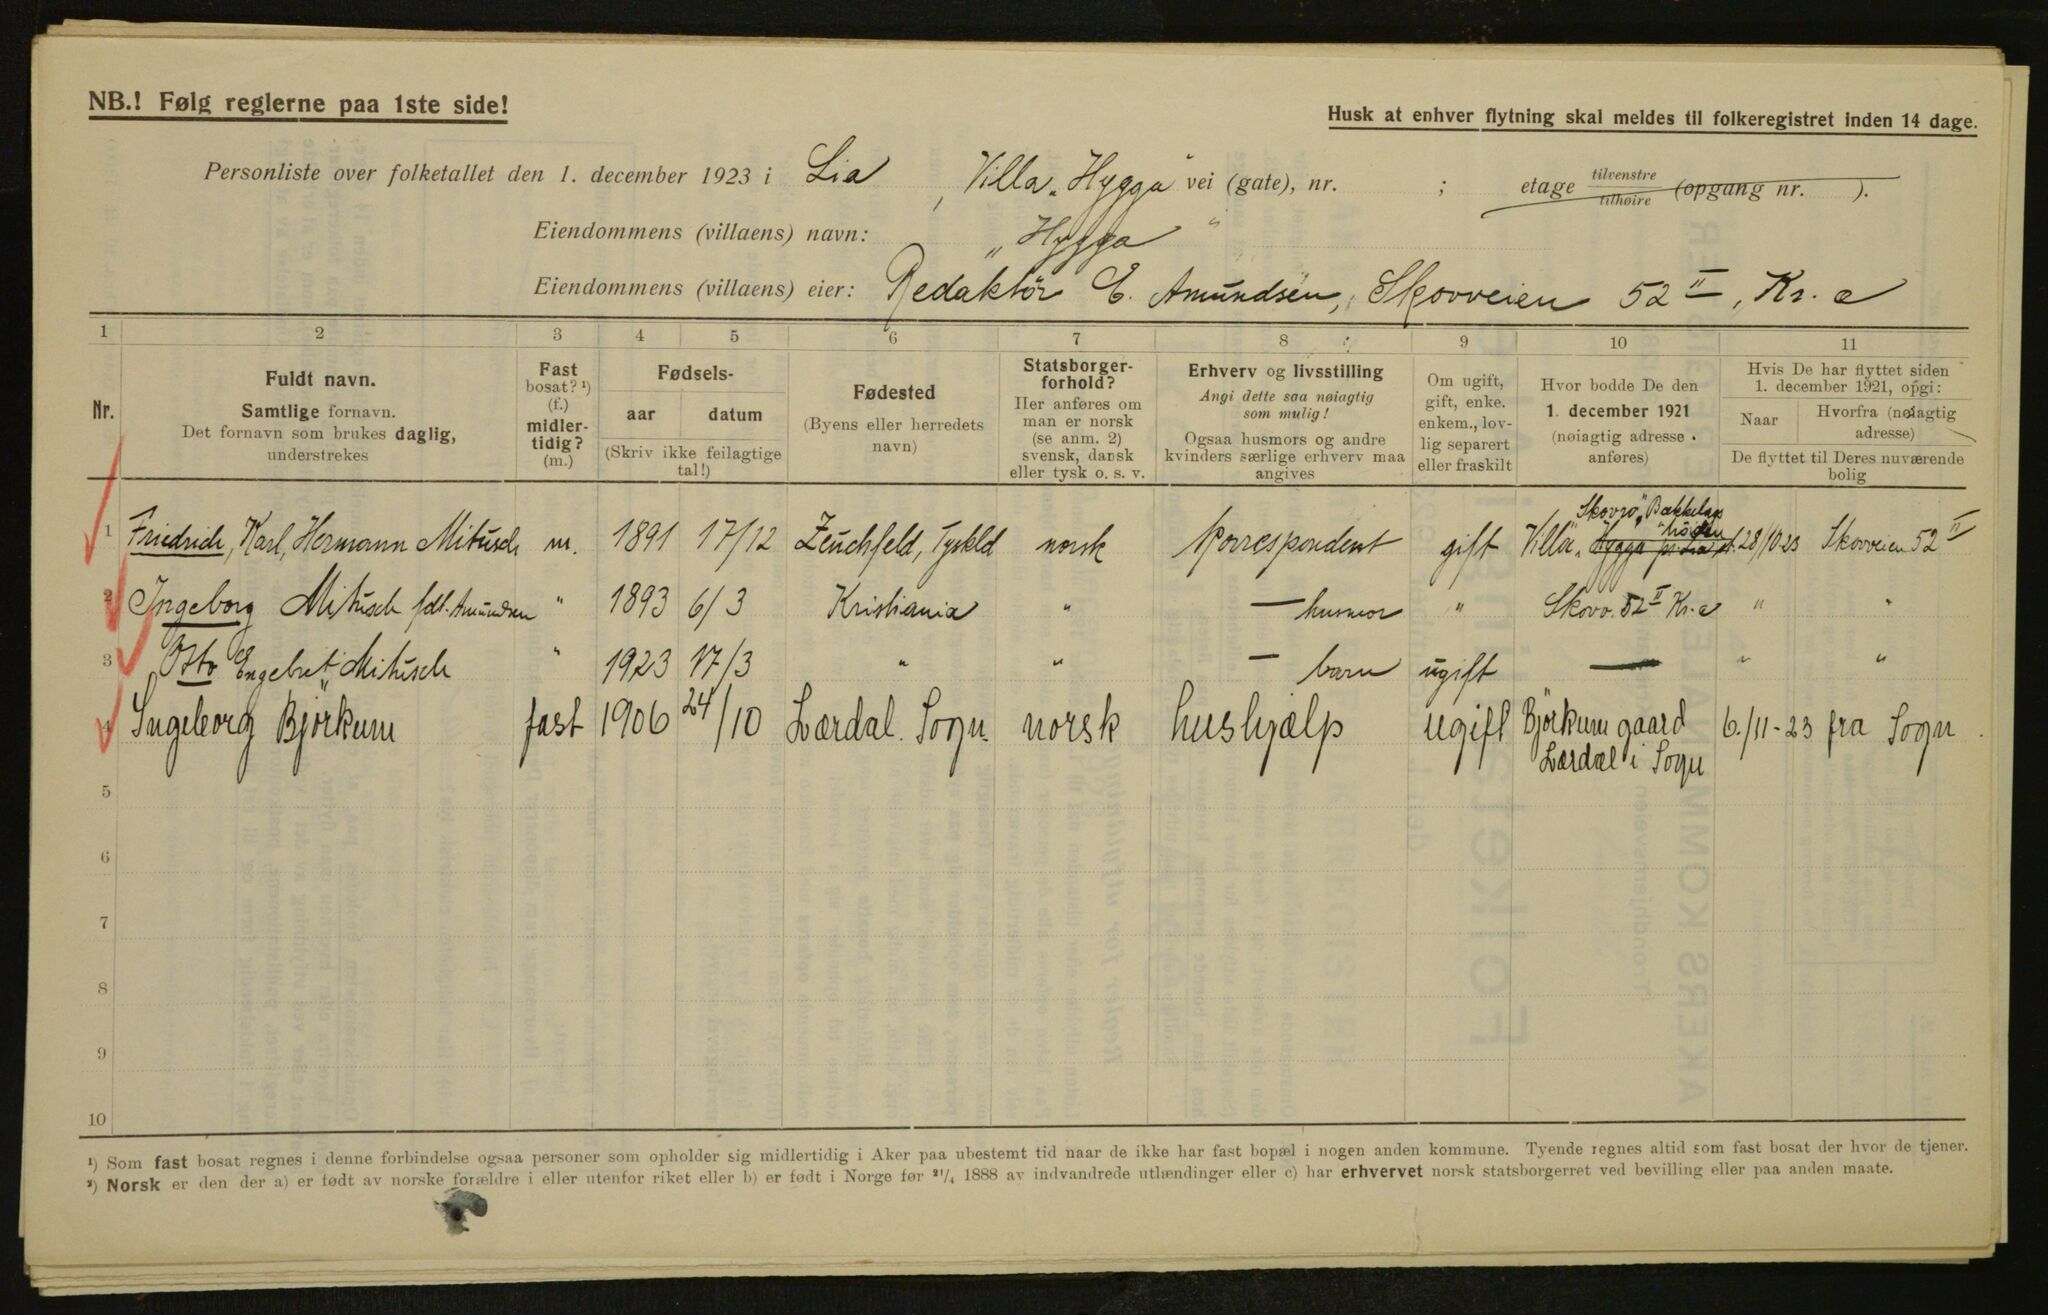 NB.! Følg reglerne paa 1ste side!
Husk at enhver flytning skal meldes til folkeregistret inden 14 dage.
Personliste over folketallet den 1. december 1923 i Lia, Villa „Hygga" vei (gate), nr. ; etage tilvenstre tilhøire (opgang nr. ).
Eiendommens (villaens) navn: „Hygga"
Eiendommens (villaens) eier: Redaktör E. Amundsen, Skovveien 52 II, Kr. a
1 2 3 4 5 6 7 8 9 10 11
Nr.
Fuldt navn.
Samtlige fornavn.
Det fornavn som brukes daglig,
understrekes
Fast
bosat? ¹)
(f.)
midler-
tidig?
(m.)
Fødsels-
aar datum
(Skriv ikke feilagtige
tal!)
Fødested
(Byens eller herredets
navn)
Statsborger-
forhold?
Her anføres om
man er norsk
(se anm. 2)
svensk, dansk
eller tysk o. s. v.
Erhverv og livsstilling
Angi dette saa nøiagtig
som mulig!
Ogsaa husmors og andre
kvinders særlige erhverv maa
angives
Om ugift,
gift, enke.
enkem., lov-
lig separert
eller fraskilt
Hvor bodde De den
1. december 1921
(nøiagtig adresse
anføres)
Hvis De har flyttet siden
1. december 1921, opgi:
Naar Hvorfra (nøiagtig
adresse)
De flyttet til Deres nuværende
bolig
Skovro", Bækkelags
höiden
1 Friedrich, Karl, Hermann Mitusch m. 1891 17/12 Zeuchfeld, Tyskld norsk Korrespondent gift Villa „Hygga 28/10-23 Skovveien 52 II
2 Ingeborg Mitusch fdt. Amundsen " 1893 6/3 Kristiania " — husmor " Skovv. 52 II Kr. a " "
3 Otto Engebret Mitusch " 1923 17/3 " " — barn ugift — " "
4 Ingeborg Björkum fast 1906 24/10 Lærdal. Sogn. norsk hushjælp ugift Björkum gaard 6./11-23 fra Sogn.
Lærdal i Sogn
5
6
7
8
9
10
¹) Som fast bosat regnes i denne forbindelse ogsaa personer som opholder sig midlertidig i Aker paa ubestemt tid naar de ikke har fast bopæl i nogen anden kommune. Tyende regnes altid som fast bosat der hvor de tjener.
²) Norsk er den der a) er født av norske forældre i eller utenfor riket eller b) er født i Norge før ²¹/₄ 1888 av indvandrede utlændinger eller c) har erhvervet norsk statsborgerret ved bevilling eller paa anden maate.